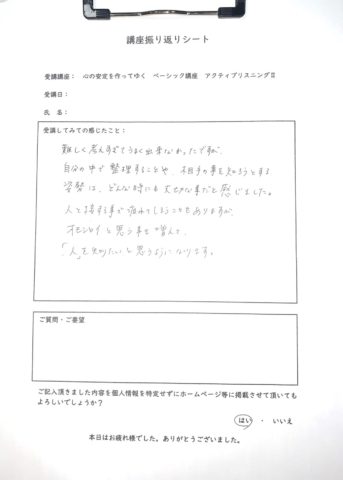 講座振り返りシート
受講講座： 心の安定を作ってゆく ベーシック講座 アクティブリスニングⅡ
受講日：
氏 名：
受講してみての感じたこと：
難しく考えすぎてうまく出来なかったですが、
自分の中で整理することや、相手の事を知ろうとする
姿勢は、どんな時にも大切な事だと感じました。
人と接する事で疲れてしまうこともありますが、
オモシロイと思う事も増えて、
「人」を知りたいと思うようになります。
ご質問・ご要望
ご記入頂きました内容を個人情報を特定せずにホームページ等に掲載させて頂いても
よろしいでしょうか？
はい ・ いいえ
本日はお疲れ様でした。ありがとうございました。